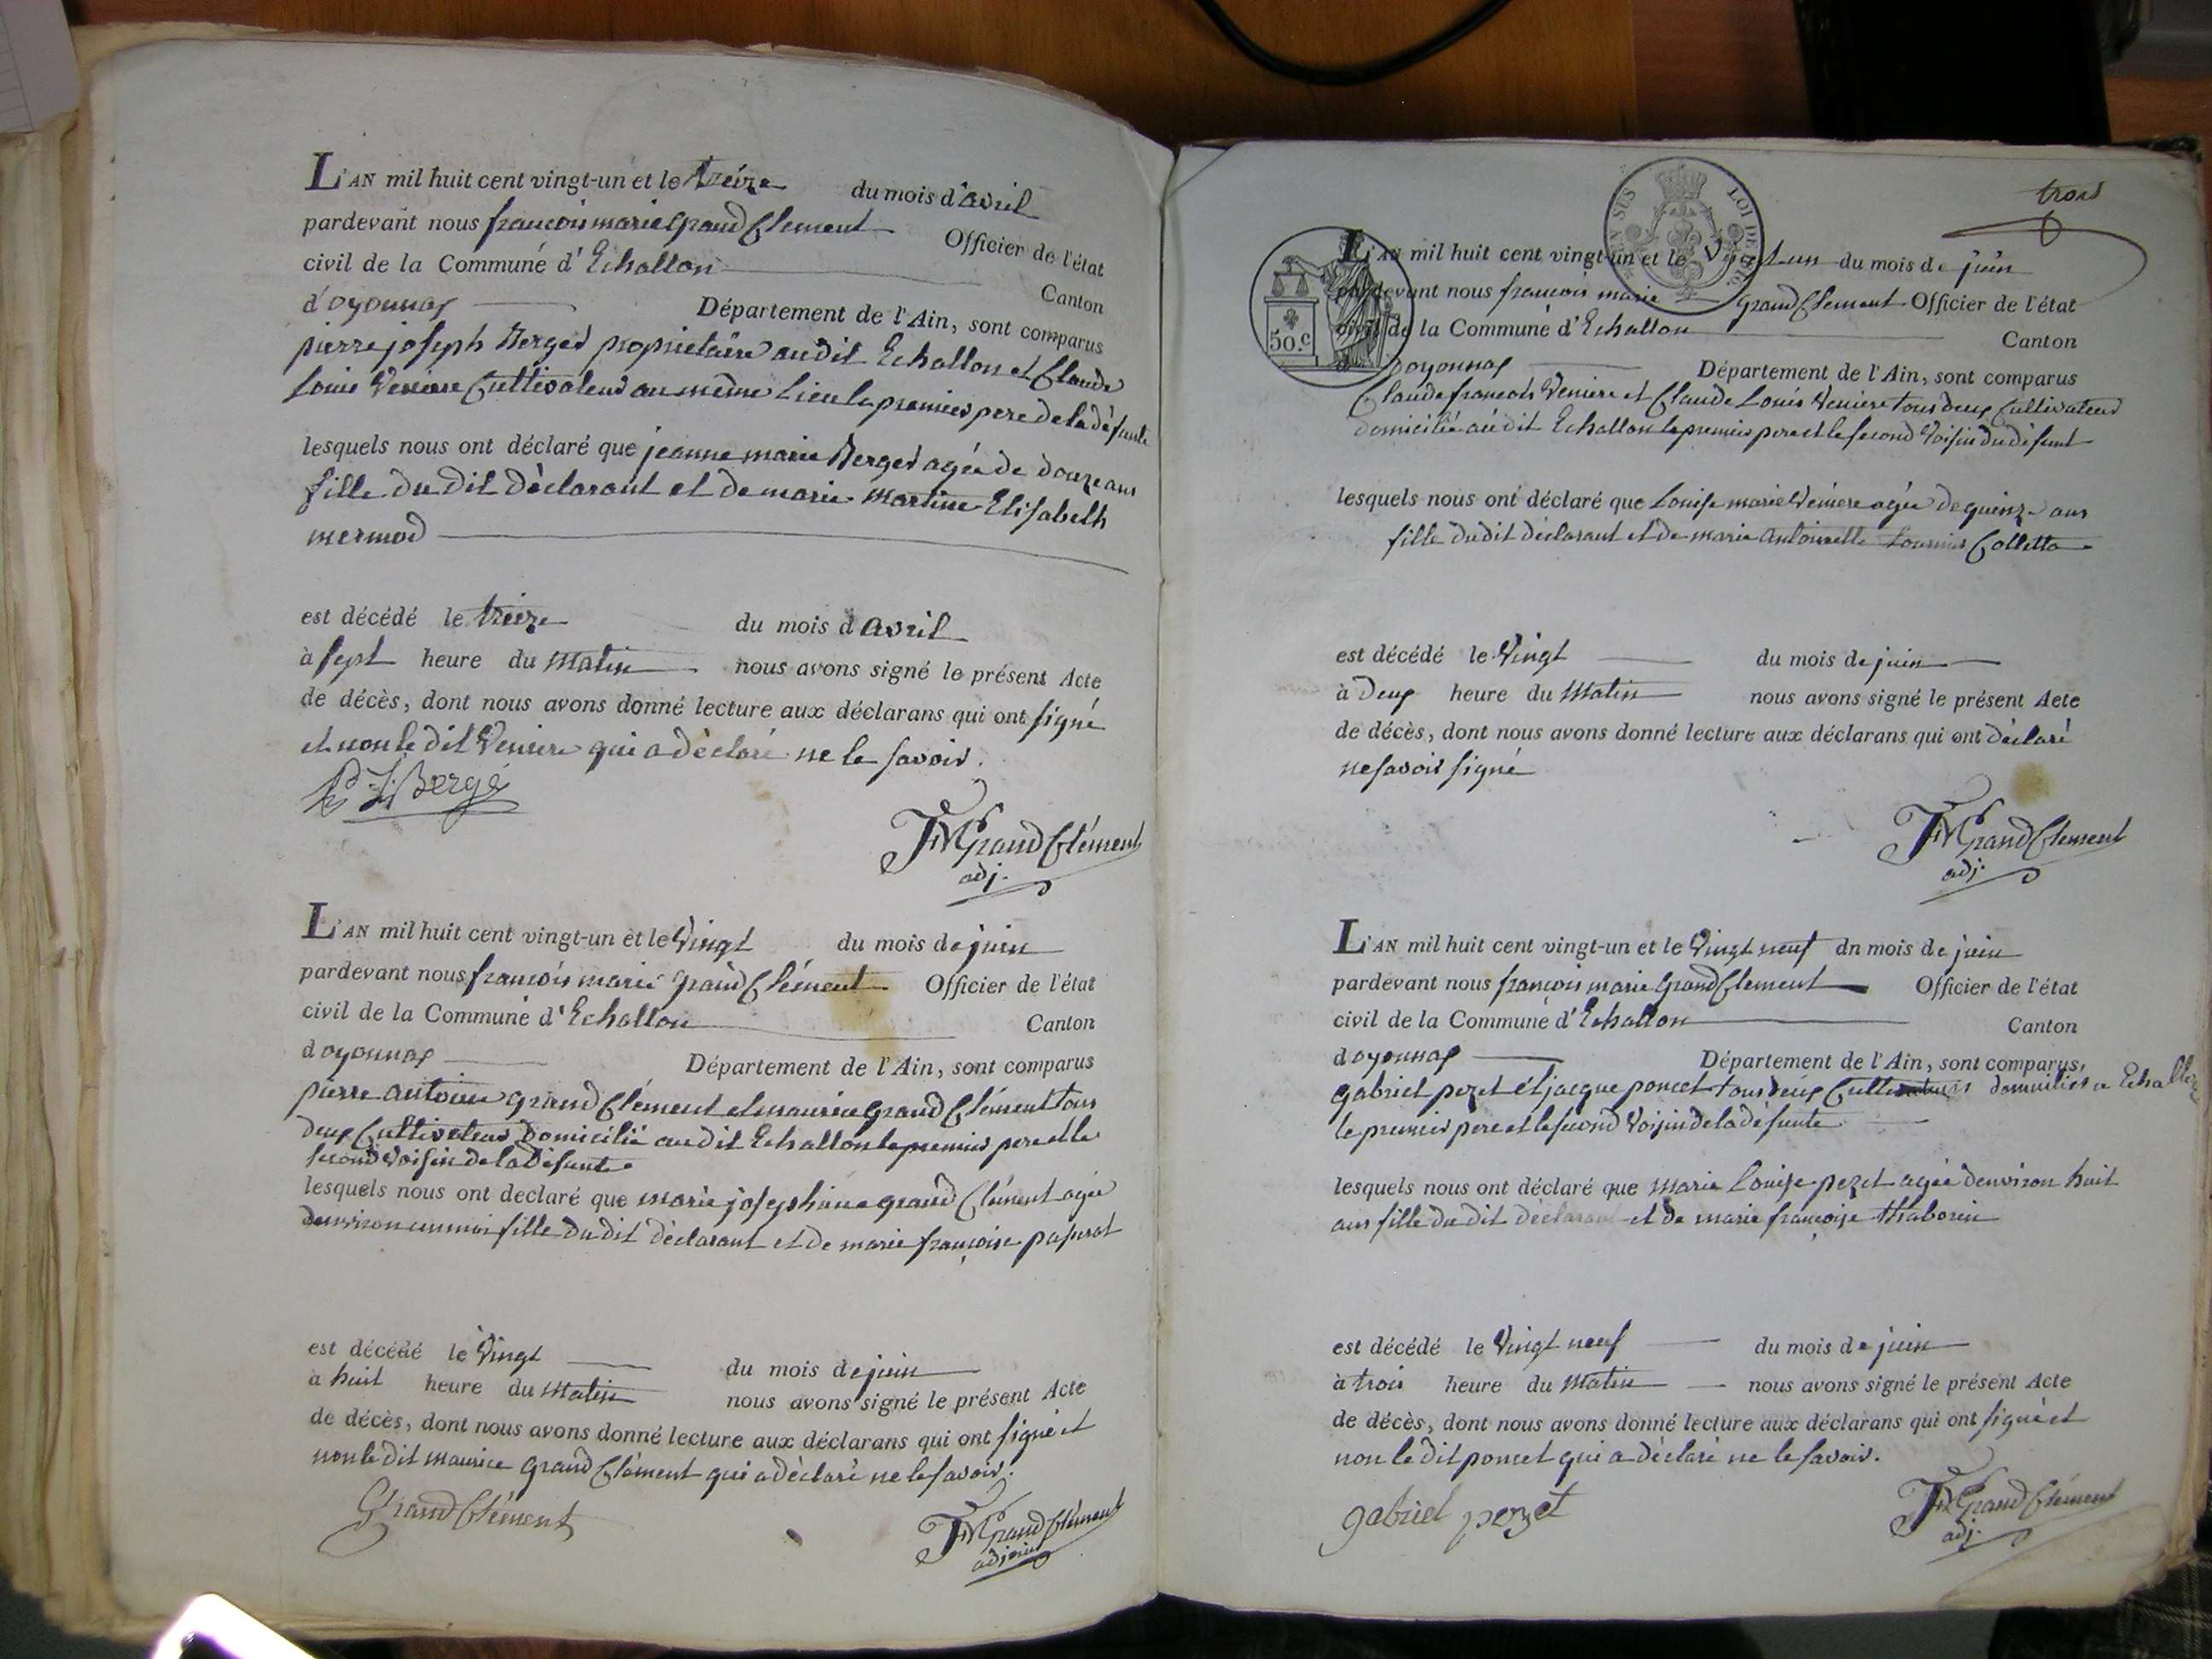 L'AN mil huit cent vingt-un et le treize du mois d'avril
pardevant nous francois marie grand Clement Officier de l'état
civil de la Commune d'Echallon Canton
d'oyonnax Département de l'Ain, sont comparus
pierre joseph Berger propriétaire audit Echallon et Claude
Louis Veniere Cultivateur au même Lieu le premier pere de la défunte
lesquels nous ont déclaré que jeanne marie Berger agée de douze ans
fille du dit déclarant et de marie Martine Elisabeth
mermod
est décédé le treize du mois d'avril
à sept heure du Matin nous avons signé le présent Acte
de décès, dont nous avons donné lecture aux déclarans qui ont signé
et non le dit Veniere qui a déclaré ne le savoir.
P J Bergé
FM Grand Clément
adj.
L'AN mil huit cent vingt-un et le Vingt du mois de juin
pardevant nous francois marie grand Clément Officier de l'état
civil de la Commune d'Echallon Canton
d'oyonnax Département de l'Ain, sont comparus
pierre antoine grand Clément et maurice grand Clément tous
deux Cultivateur domicilié audit Echallon le premier pere et le
second Voisin de la défunte
lesquels nous ont declaré que marie josephine grand Clément agée
denviron un moi fille du dit déclarant et de marie françoise
est décédé le Vingt du mois de juin
à huit heure du Matin nous avons signé le présent Acte
de décès, dont nous avons donné lecture aux déclarans qui ont signé et
non le dit maurice grand Clément qui a déclaré ne le savoir.
Grand Clément
FM Grand Clément
adjoint
trois
LOI DE
50.c
L'AN mil huit cent vingt-un et le Vingt un du mois de juin
pardevant nous francois marie grand Clement Officier de l'état
civil de la Commune d'Echallon Canton
d'oyonnax Département de l'Ain, sont comparus
Claude francois Veniere et Claude Louis Veniere tous deux Cultivateur
domicilié au dit Echallon le premier pere et le second Voisin du défunt
lesquels nous ont déclaré que Louise marie Veniere agée de quinze ans
fille du dit déclarant et de marie antoinette Colletta
est décédé le Vingt du mois de juin
à deux heure du Matin nous avons signé le présent Acte
de décès, dont nous avons donné lecture aux déclarans qui ont déclaré
ne savoir signé
FM Grand Clement
adj.
L'AN mil huit cent vingt-un et le Vingt neuf dn mois de juin
pardevant nous françois marie grand Clement Officier de l'état
civil de la Commune d'Echallon Canton
d'oyonnax Département de l'Ain, sont comparus,
gabriel pezet et jacque poncet tous deux Cultivateurs domiciliés a Echallon
le premier pere et le second Voisin de la défunte
lesquels nous ont déclaré que Marie Louise pezet agée denviron huit
ans fille du dit déclarant et de marie françoise thaborin
est décédé le Vingt neuf du mois de juin
à trois heure du Matin nous avons signé le présent Acte
de décès, dont nous avons donné lecture aux déclarans qui ont signé et
non le dit poncet qui a déclaré ne le savoir.
gabriel pezet
FM Grand Clément
adj.